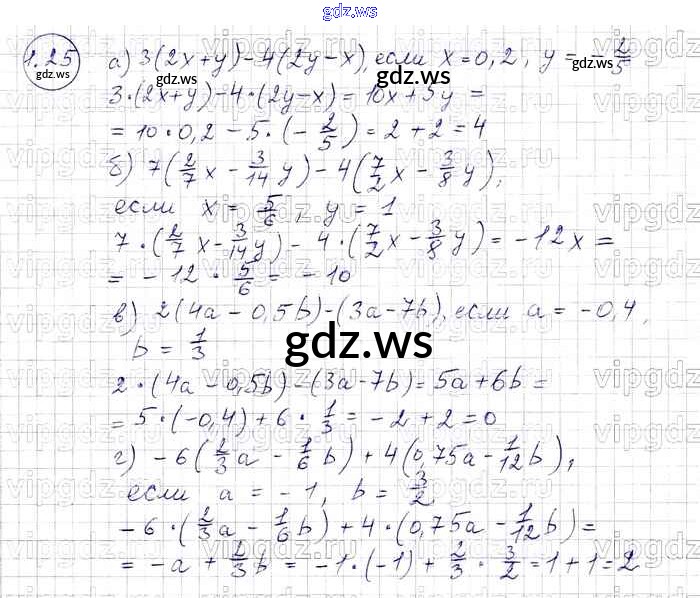 gdz.ws
1.25 а) 3(2x+y)-4(2y-x), если x=0,2, y=-2/5
gdz.ws gdz.ws gdz.ws
3·(2x+y)-4·(2y-x)=10x+5y=
=10·0,2-5·(-2/5)=2+2=4
б) 7(2/7x-3/14y)-4(7/2x-3/8y),
если x=5/6, y=1
7·(2/7x-3/14y)-4·(7/2x-3/8y)=-12x=
=-12·5/6=-10
в) 2(4a-0,5b)-(3a-7b), если a=-0,4,
b=1/3
gdz.ws
2·(4a-0,5b)-(3a-7b)=5a+6b=
=5·(-0,4)+6·1/3=-2+2=0
г) -6(2/3a-1/6b)+4(0,75a-1/12b),
если a=-1, b=3/2
-6·(2/3a-1/6b)+4·(0,75a-1/12b)=
=-a+2/3b=-1·(-1)+2/3·3/2=1+1=2
gdz.ws gdz.ws gdz.ws